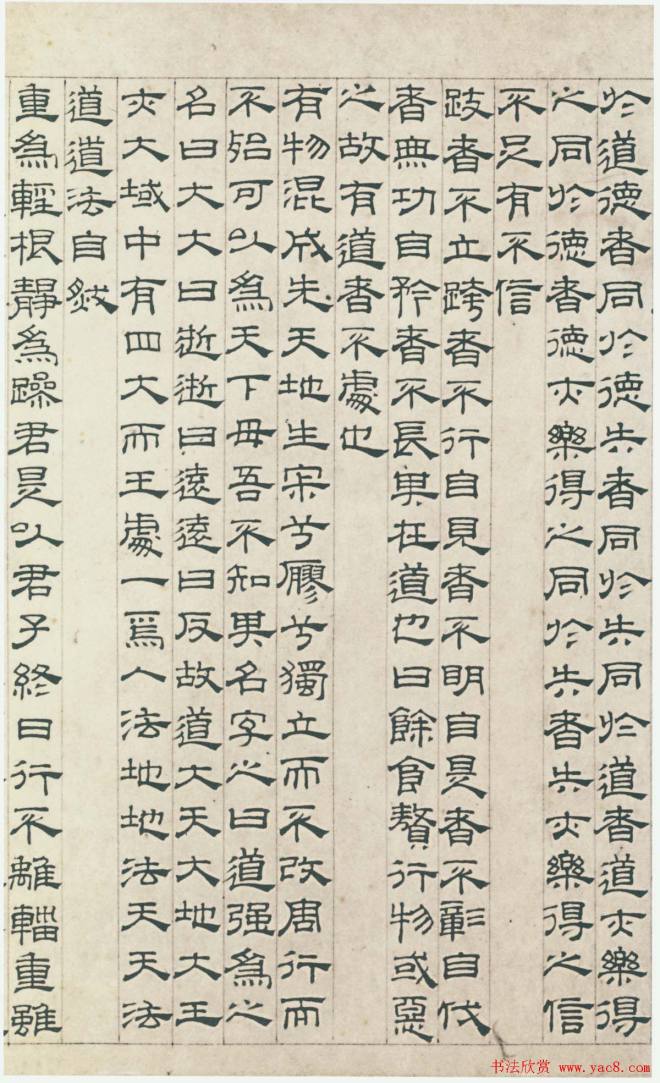 於道德者同於德失者同於失同於道者道亦樂得
之同於德者德亦樂得之同於失者失亦樂得之信
不足有不信
跂者不立跨者不行自見者不明自是者不彰自伐
者無功自矜者不長其在道也曰餘食贅行物或惡
之故有道者不處也
有物混成先天地生寂兮廖兮獨立而不改周行而
不殆可以為天下母吾不知其名字之曰道强為之
名曰大大曰逝逝曰遠遠曰反故道大天大地大王
亦大域中有四大而王處一焉人法地地法天天法
道道法自然
重為輕根靜為躁君是以君子終日行不離輜重雖
书法欣赏 www.yac8.com